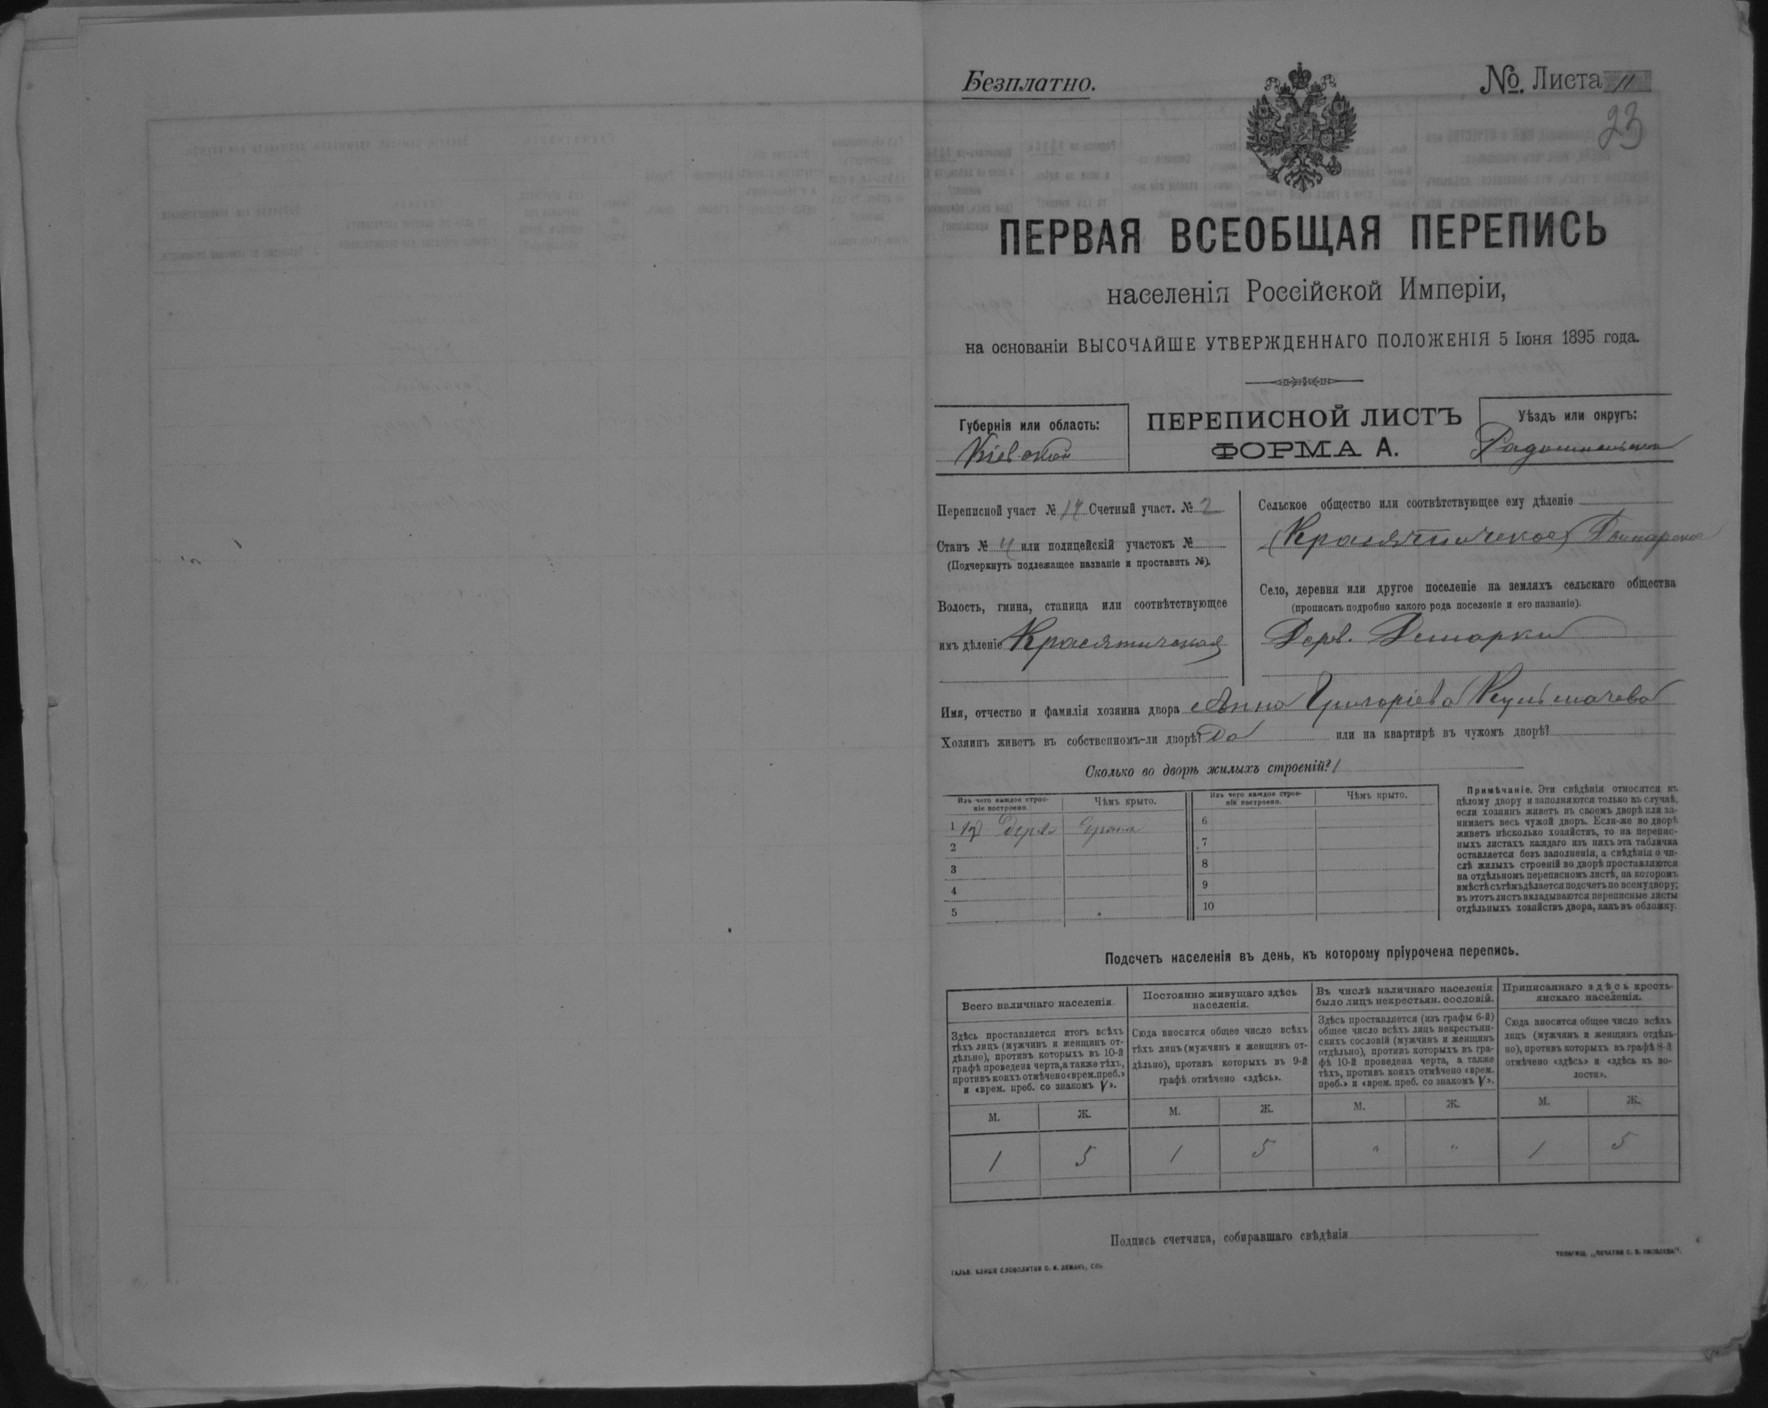 Безплатно.
№. Листа 11
23
ПЕРВАЯ ВСЕОБЩАЯ ПЕРЕПИСЬ
населенія Россійской Имперіи,
на основаніи ВЫСОЧАЙШЕ УТВЕРЖДЕННАГО ПОЛОЖЕНІЯ 5 Іюня 1895 года.
Губернія или область:
Кіевской
ПЕРЕПИСНОЙ ЛИСТЪ
ФОРМА А.
Уѣздъ или округъ:
Радомысльскій
Переписной участ № 14 Счетный участ. № 2
Станъ № 4 или полицейскій участокъ №
(Подчеркнуть подлежащее названіе и проставить №).
Волость, гмина, станица или соотвѣтствующее
имъ дѣленіе Красятическая
Сельское общество или соотвѣтствующее ему дѣленіе
(Красятическое)
Село, деревня или другое поселеніе на земляхъ сельскаго общества
(прописать подробно какого рода поселеніе и его названіе).
Дерв.
Имя, отчество и фамилія хозяина двора Анна Григоріева
Хозяинъ живетъ въ собственномъ-ли дворѣ? Да или на квартирѣ въ чужомъ дворѣ?
Сколько во дворѣ жилыхъ строеній? 1
Изъ чего каждое строе-
ніе построено.
Чѣмъ крыто.
Изъ чего каждое строе-
ніе построено.
Чѣмъ крыто.
1 Изъ дерева
6
2
7
3
8
4
9
5
10
Примѣчаніе. Эти свѣдѣнія относятся къ
цѣлому двору и заполняются только въ случаѣ,
если хозяинъ живетъ въ своемъ дворѣ или за-
нимаетъ весь чужой дворъ. Если-же во дворѣ
живетъ нѣсколько хозяйствъ, то на перепис-
ныхъ листахъ каждаго изъ нихъ эта табличка
оставляется безъ заполненія, а свѣдѣнія о чи-
слѣ жилыхъ строеній во дворѣ проставляются
на отдѣльномъ переписномъ листѣ, на которомъ
вмѣстѣ съ тѣмъ дѣлается подсчетъ по всему двору;
въ этотъ листъ вкладываются переписные листы
отдѣльныхъ хозяйствъ двора, какъ въ обложку.
Подсчетъ населенія въ день, къ которому пріурочена перепись.
Всего наличнаго населенія.
Здѣсь проставляется итогъ всѣхъ
тѣхъ лицъ (мужчинъ и женщинъ от-
дѣльно), противъ которыхъ въ 10-й
графѣ проведена черта, а также тѣхъ,
противъ коихъ отмѣчено «врем. преб.»
и «врем. преб. со знакомъ V».
Постоянно живущаго здѣсь
населенія.
Сюда вносится общее число всѣхъ
тѣхъ лицъ (мужчинъ и женщинъ от-
дѣльно), противъ которыхъ въ 9-й
графѣ отмѣчено «здѣсь».
Въ числѣ наличнаго населенія
было лицъ некрестьян. сословій.
Здѣсь проставляется (изъ графы 6-й)
общее число всѣхъ лицъ некрестьян-
скихъ сословій (мужчинъ и женщинъ
отдѣльно), противъ которыхъ въ гра-
фѣ 10-й проведена черта, а также
тѣхъ, противъ коихъ отмѣчено «врем.
преб.» и «врем. преб. со знакомъ V».
Приписаннаго здѣсь кресть-
янскаго населенія.
Сюда вносится общее число всѣхъ
лицъ (мужчинъ и женщинъ отдѣль-
но), противъ которыхъ въ графѣ 8-й
отмѣчено «здѣсь» и «здѣсь въ во-
лости».
М. Ж. М. Ж. М. Ж. М. Ж.
1 5 1 5 " " 1 5
Подпись счетчика, собиравшаго свѣдѣнія